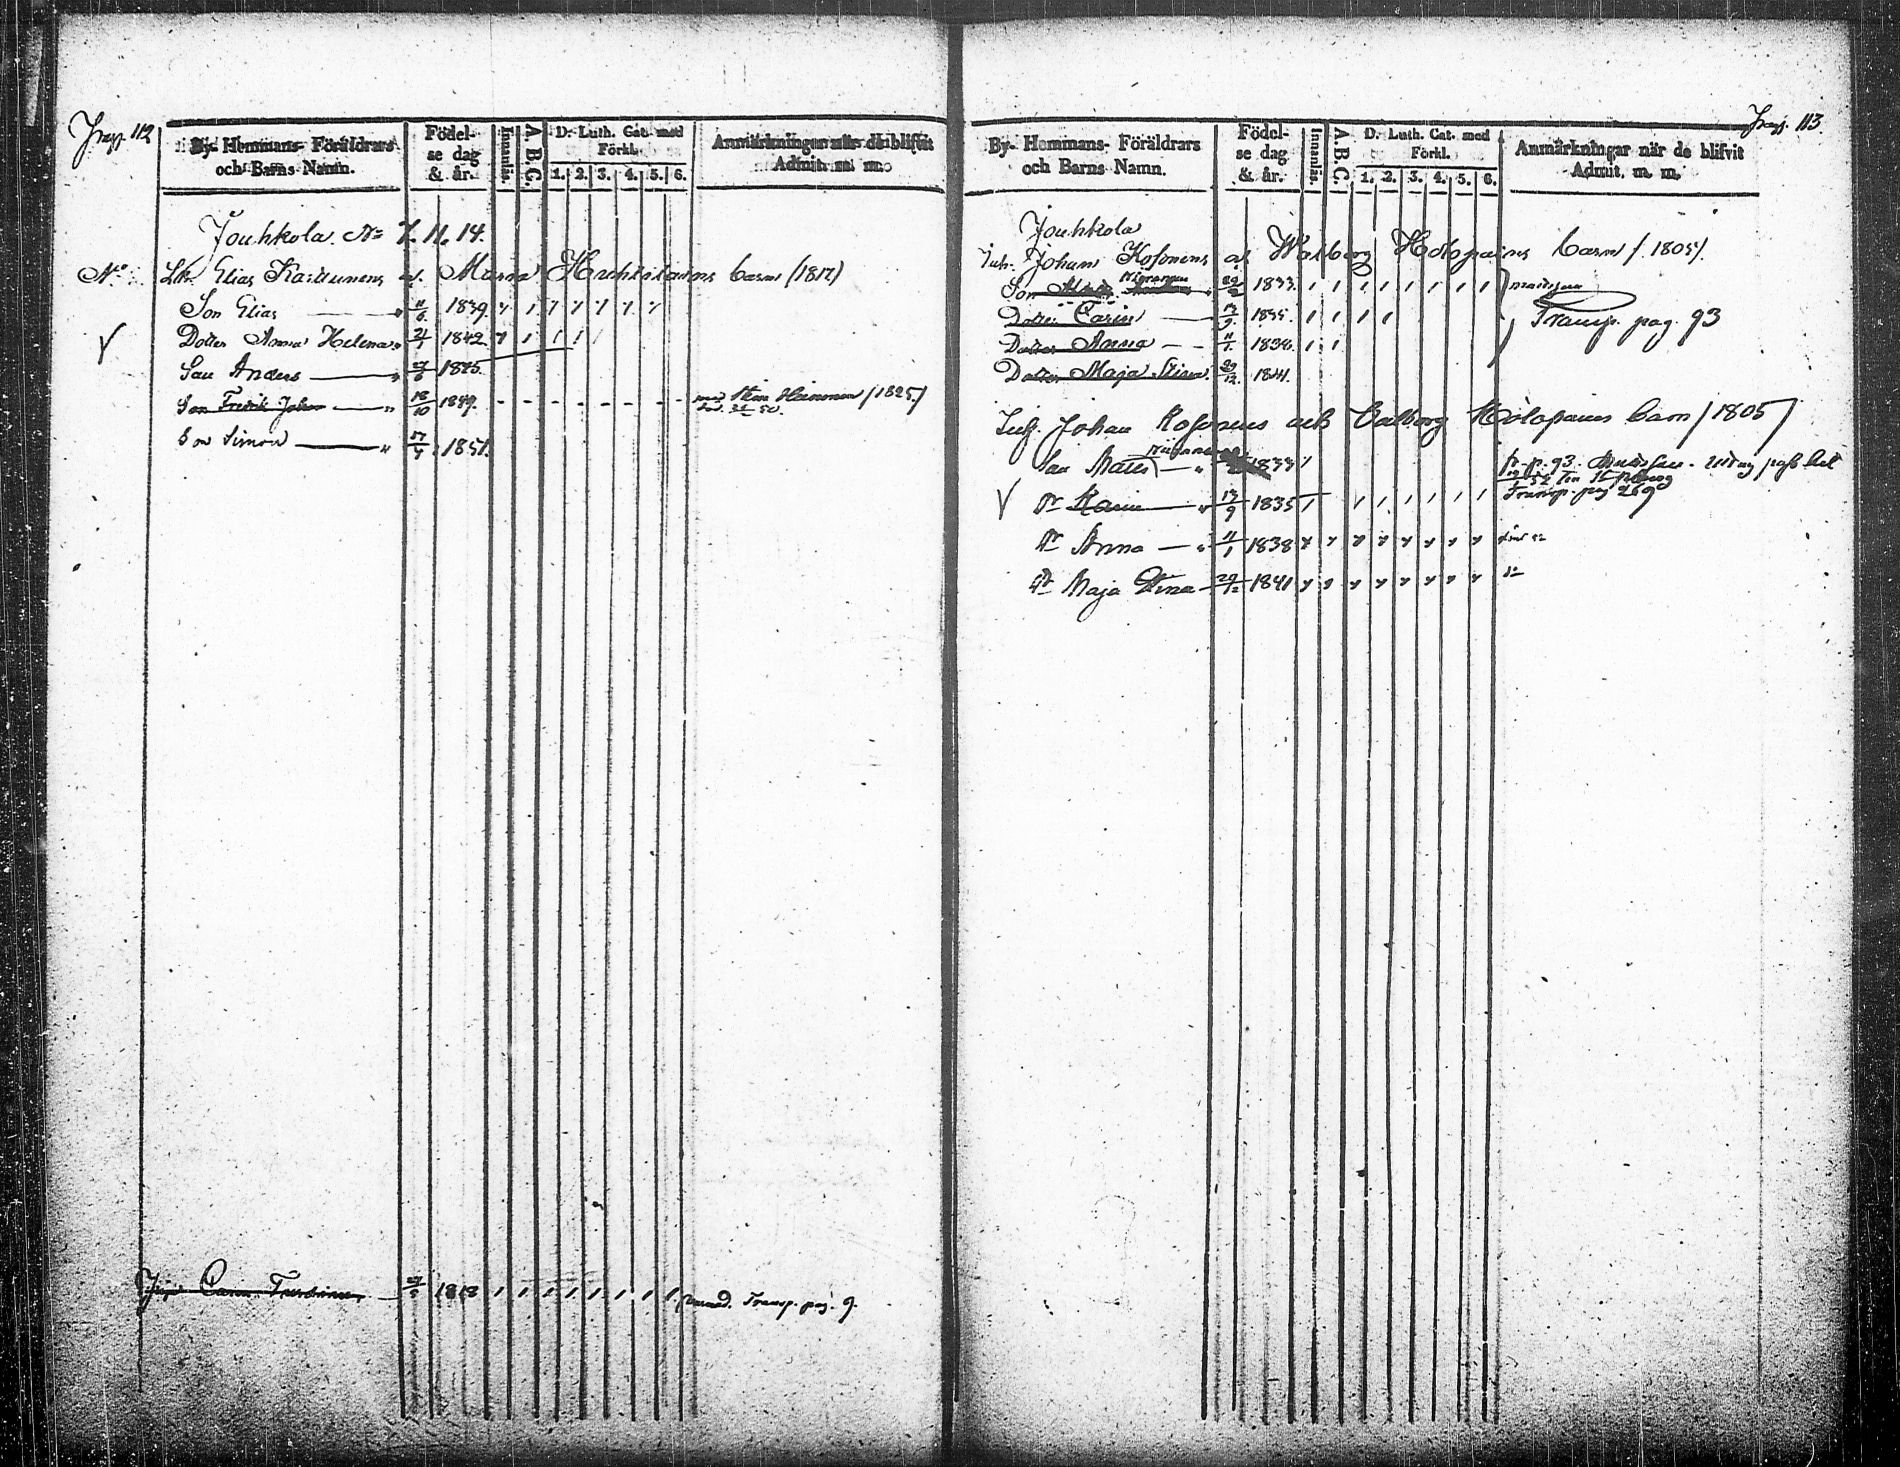 Pag. 112
By- Hemmans- Föräldrars och Barns Namn.
Födel-se dag & år.
Innanläs.
A. B. C.
D. Luth. Cat. med Förkl.
1. 2. 3. 4. 5. 6.
Anmärkningar när de blifvit Admit. m. m.
Jouhkola. No 7. 11. 14.
Elias Karhunens Maria barn (1817)
Son Elias 11/6 1839
Dotter Anna Helena 21/1 1842
Son Anders 27/6 1845
Son Fredrik Johan 18/10 1849. med Stina Heinonen /1825/
Son Simon 1851.
Carin 27/5 1818 Transp. pag. 9.
Pag. 113.
By- Hemmans- Föräldrars och Barns Namn.
Födel-se dag & år.
Innanläs.
A. B. C.
D. Luth. Cat. med Förkl.
1. 2. 3. 4. 5. 6.
Anmärkningar när de blifvit Admit. m. m.
Jouhkola
Inh. Johan Kosonens o. Walborg Holopains barn /1805/.
Son 1833.
Dotter Carin 13/9 1835. Transp. pag. 93
Dotter Anna 11/1 1838.
Dotter Maja Stina 29/12 1841.
Inh. Johan Kosonens och Valborg Holopains barn /1805/
Son Mats 1833 p. 93.
Dr Karin 13/9 1835 Transp. pag 269
Dr Anna 11/1 1838
Dr Maja Stina 29/12 1841